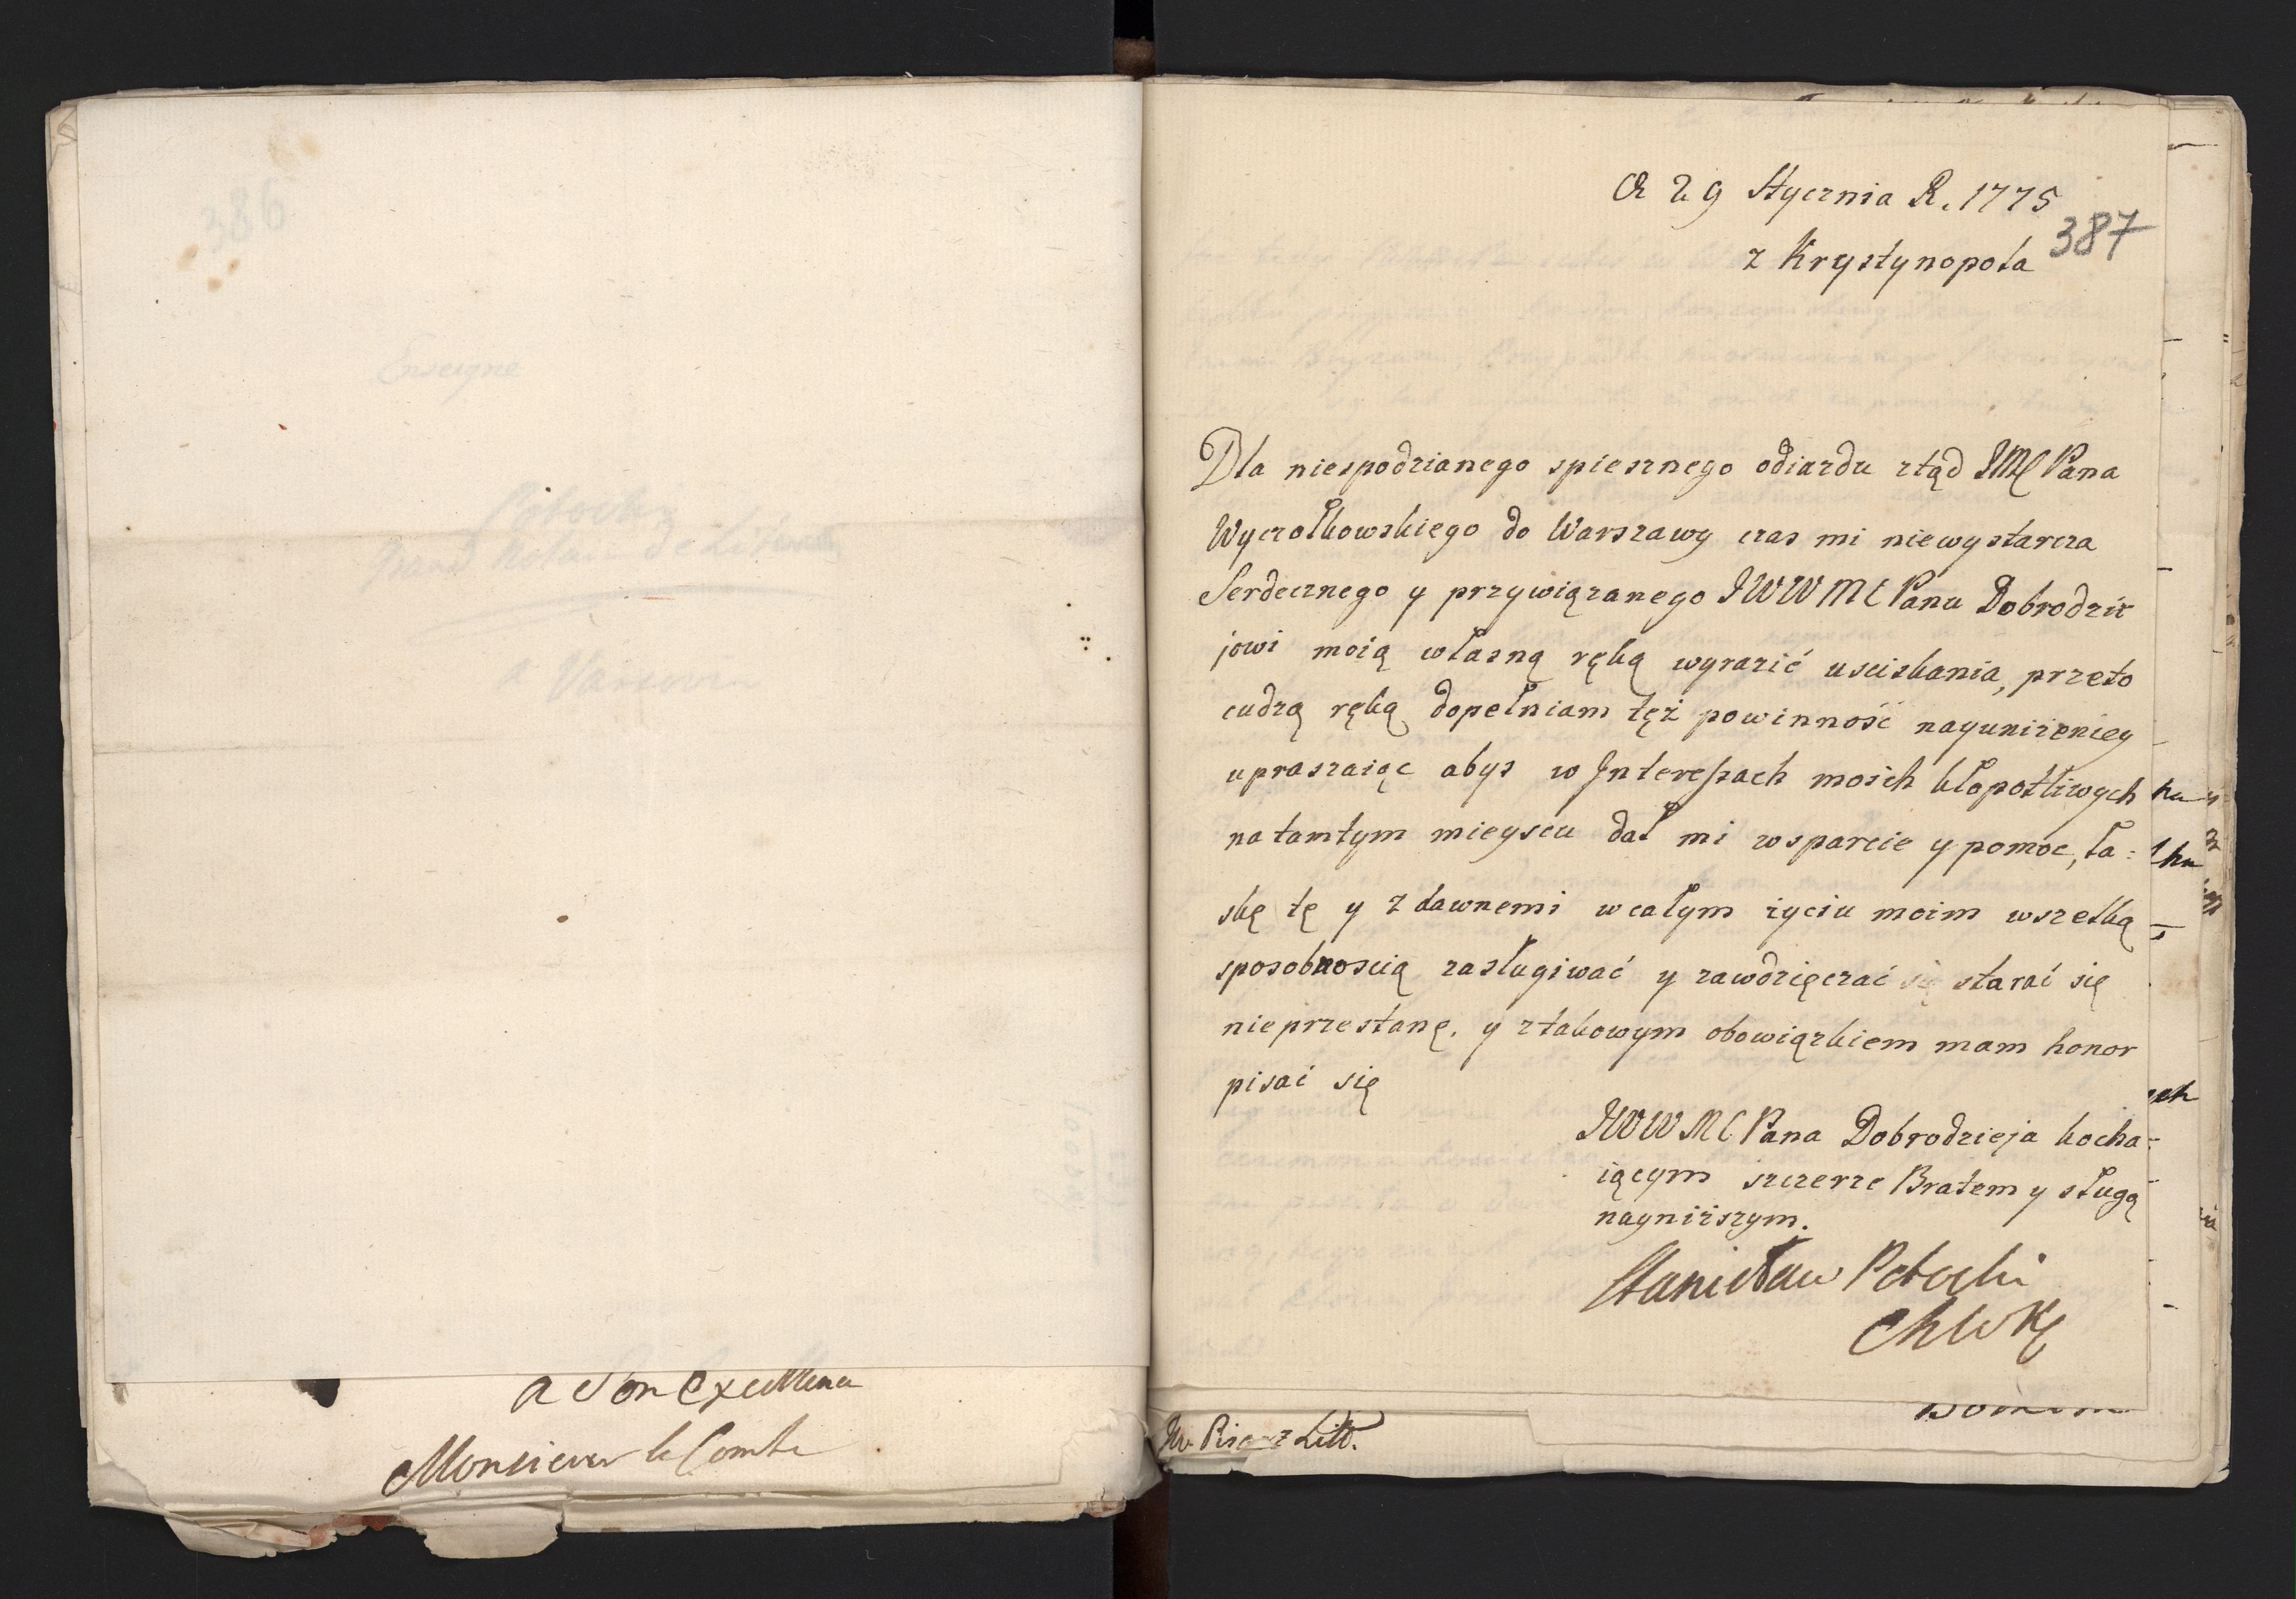 386
Enseigne
Potocky
grand Notai de Litwa
a Varsovie
a Son Excellence
Monsieur le Comte
d 29 Stycznia R. 1775
387
z Krystynopola
Dla niespodzianego spiesznego odiazdu ztąd JMC Pana
Wyczołkowskiego do Warszawy czas mi niewystarcza
Serdecznego y przywiązanego JWWMC Panu Dobrodzie
jowi moią własną ręką wyrazić usciskania, przeto
cudzą ręką dopełniam tęż powinność nayuniżeniey
upraszaiąc abyś w Interessach moich kłopotliwych
na tamtym mieyscu dał mi wsparcie y pomoc, ła=
skę tę y z dawnemi w całym życiu moim wszelką
sposobnoscią zasługiwać y zawdzięczać starać się
nieprzestanę. y ztakowym obowiązkiem mam honor
pisać się
JWWMC Pana Dobrodzieja kocha=
iącym szczerze Bratem y sługą
nayniższym.
Stanisław Potocki
ChWK
JW. Pisarz Litt.